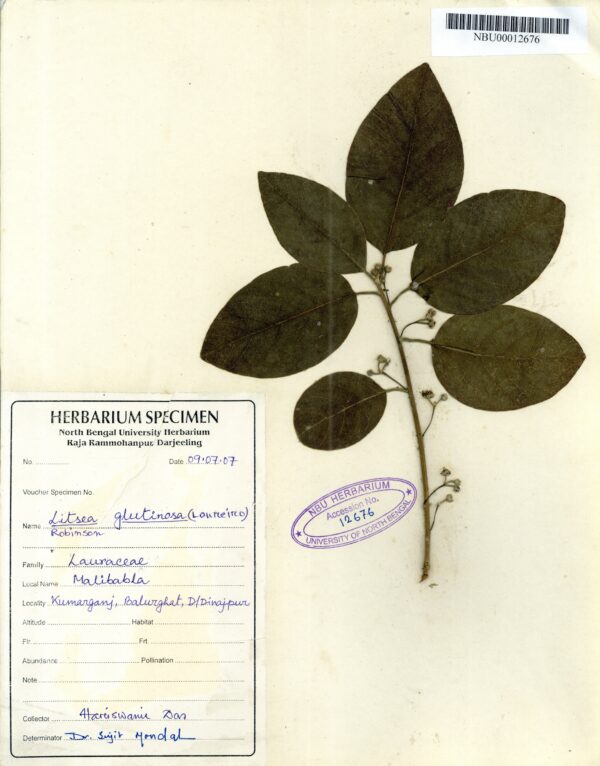 NBU00012676
HERBARIUM SPECIMEN
North Bengal University Herbarium
Raja Rammohanpur Darjeeling
No. Date 09.07.07
Voucher Specimen No.
Name Litsea glutinosa (Loureiro)
Robinson
Family Lauraceae
Local Name Malibabla
Locality Kumarganj, Balurghat, D/Dinajpur
Altitude Habitat
Flr Frt.
Abundance Pollination
Note
Collector Das
Determinator Dr. Sujit Mondal
NBU HERBARIUM
Accession No.
12676
UNIVERSITY OF NORTH BENGAL